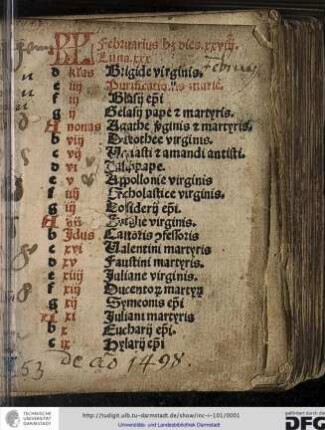 KL Februarius hz dies.xxviij.
Luna.xxx
d klas Brigide virginis.
e iiij Purificatio marie.
f iij Blasij epi
g ij Gelasij pape z martyris.
A nonas Agathe v̄ginis z martyris.
b viij Dorothee virginis.
c vij Vedasti z amandi antisti.
d vi pape.
e v Appollonie virginis
f iiij Scholastice virginis.
g iij Desiderij epi.
A virginis.
b Idus Castoris ꝯfessoris
c xvi Valentini martyris
d xv Faustini martyris.
e xiiij Juliane virginis.
f xiij Ducentoꝝ martyꝝ
g xij Symeonis epi
A xi Juliani martyris
b x Eucharij epi.
c ix Hylarij epi
53 de ao 1498.
TECHNISCHE UNIVERSITÄT DARMSTADT
http://tudigit.ulb.tu-darmstadt.de/show/inc-i-101/0001
Universitäts- und Landesbibliothek Darmstadt
gefördert durch die
DFG